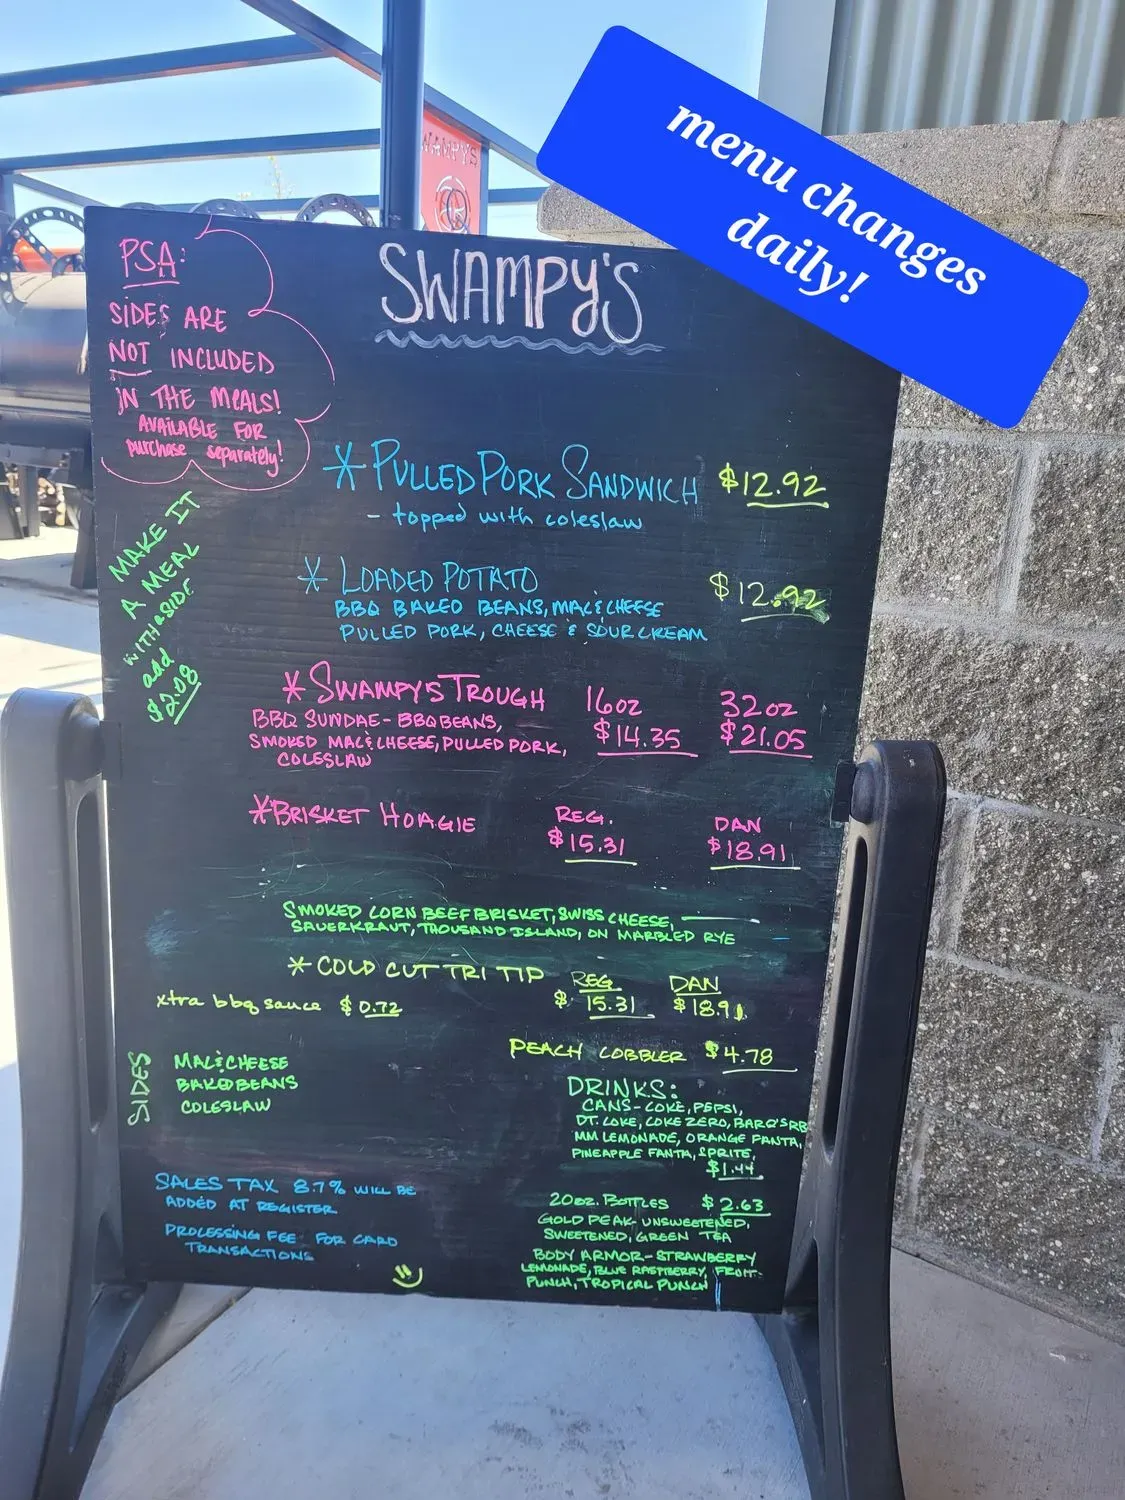 menu changes
daily!
SWAMPY'S
PSA:
SWAMPY'S
SIDES ARE
NOT INCLUDED
IN THE MEALS!
AVAILABLE FOR
purchase separately!
* PULLED PORK SANDWICH $12.92
- topped with coleslaw
MAKE IT
A MEAL
WITH A SIDE
add
$2.08
* LOADED POTATO $12.92
BBQ BAKED BEANS, MAC & CHEESE
PULLED PORK, CHEESE & SOUR CREAM
* SWAMPY'S TROUGH 16oz 32oz
BBQ SUNDAE - BBQ BEANS, $14.35 $21.05
SMOKED MAC & CHEESE, PULLED PORK,
COLESLAW
* BRISKET HOAGIE REG. DAN
$15.31 $18.91
SMOKED CORN BEEF BRISKET, SWISS CHEESE,
SAUERKRAUT, THOUSAND ISLAND, ON MARBLED RYE
* COLD CUT TRI TIP REG DAN
$15.31 $18.91
xtra bbq sauce $0.72
PEACH COBBLER $4.78
SIDES
MAC & CHEESE
BAKED BEANS
COLESLAW
DRINKS:
CANS - COKE, PEPSI,
DT. COKE, COKE ZERO, BARQ'S RB
MM LEMONADE, ORANGE FANTA,
PINEAPPLE FANTA, SPRITE,
$1.44
20oz. BOTTLES $2.63
GOLD PEAK - UNSWEETENED,
SWEETENED, GREEN TEA
BODY ARMOR - STRAWBERRY
LEMONADE, BLUE RASPBERRY, FRUIT
PUNCH, TROPICAL PUNCH
SALES TAX 8.7% WILL BE
ADDED AT REGISTER
PROCESSING FEE FOR CARD
TRANSACTIONS